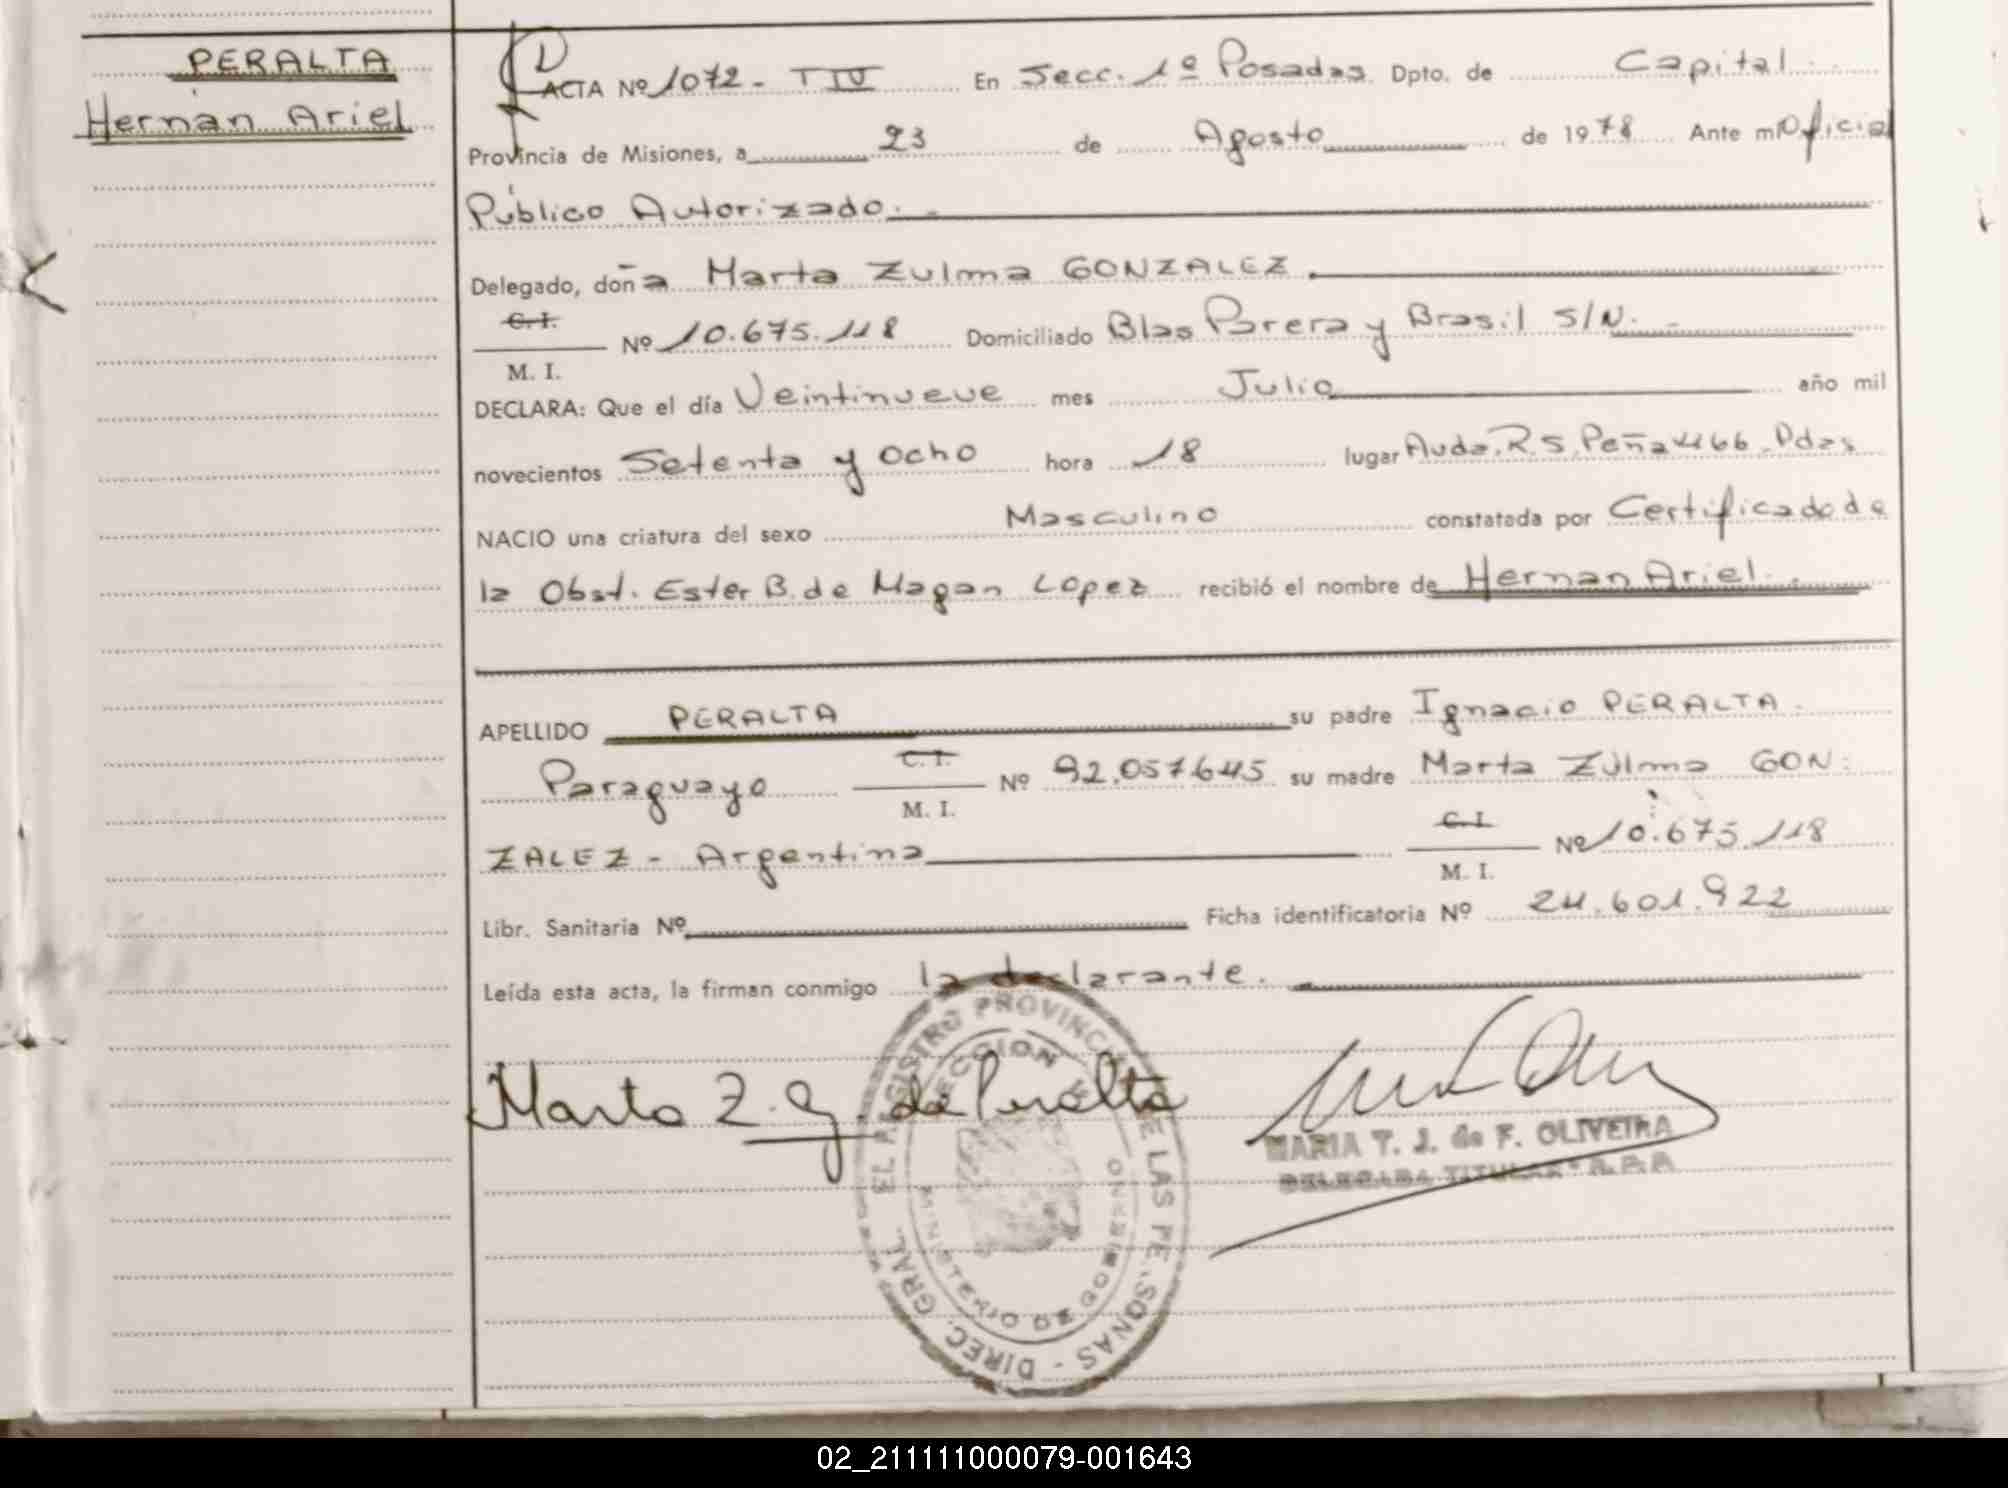 PERALTA
Hernan Ariel
ACTA Nº 1072 - T IV En Secc. 1º Posadas Dpto. de Capital
Provincia de Misiones, a 23 de Agosto de 1978 Ante mi Oficial
Público Autorizado.-
Delegado, doña Marta Zulma GONZALEZ
C. I.
M. I.
Nº 10.675.118 Domiciliado Blas Parera y Brasil S/N.-
DECLARA: Que el día Veintinueve mes Julio año mil
novecientos Setenta y Ocho hora 18 lugar Avda. R. S. Peña 466 - Pdas
NACIO una criatura del sexo Masculino constatada por Certificado de
la Obst. Ester B. de Magan Lopez recibió el nombre de Hernan Ariel.-
APELLIDO PERALTA su padre Ignacio PERALTA -
Paraguayo C. I. M. I. Nº 92.057.645 su madre Marta Zulma GON-
ZALEZ - Argentina C. I. M. I. Nº 10.675.118
Libr. Sanitaria Nº Ficha identificatoria Nº 24.601.922
Leída esta acta, la firman conmigo la declarante.
Marta Z. G. de Peralta
MARIA T. J. de F. OLIVEIRA
DELEGADA TITULAR
DIREC. GRAL. EL REGISTRO PROVINCIAL DE LAS PERSONAS
SECCION
MINISTERIO DE GOBIERNO
02_211111000079-001643